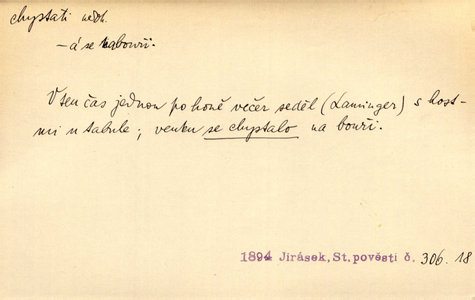 chystati nedok.
—á se na bouři.
V ten čas jednou po honě večer seděl (Laminger) s host-
mi u tabule; venku se chystalo na bouři.
1894 Jirásek, St. pověsti č. 306. 18